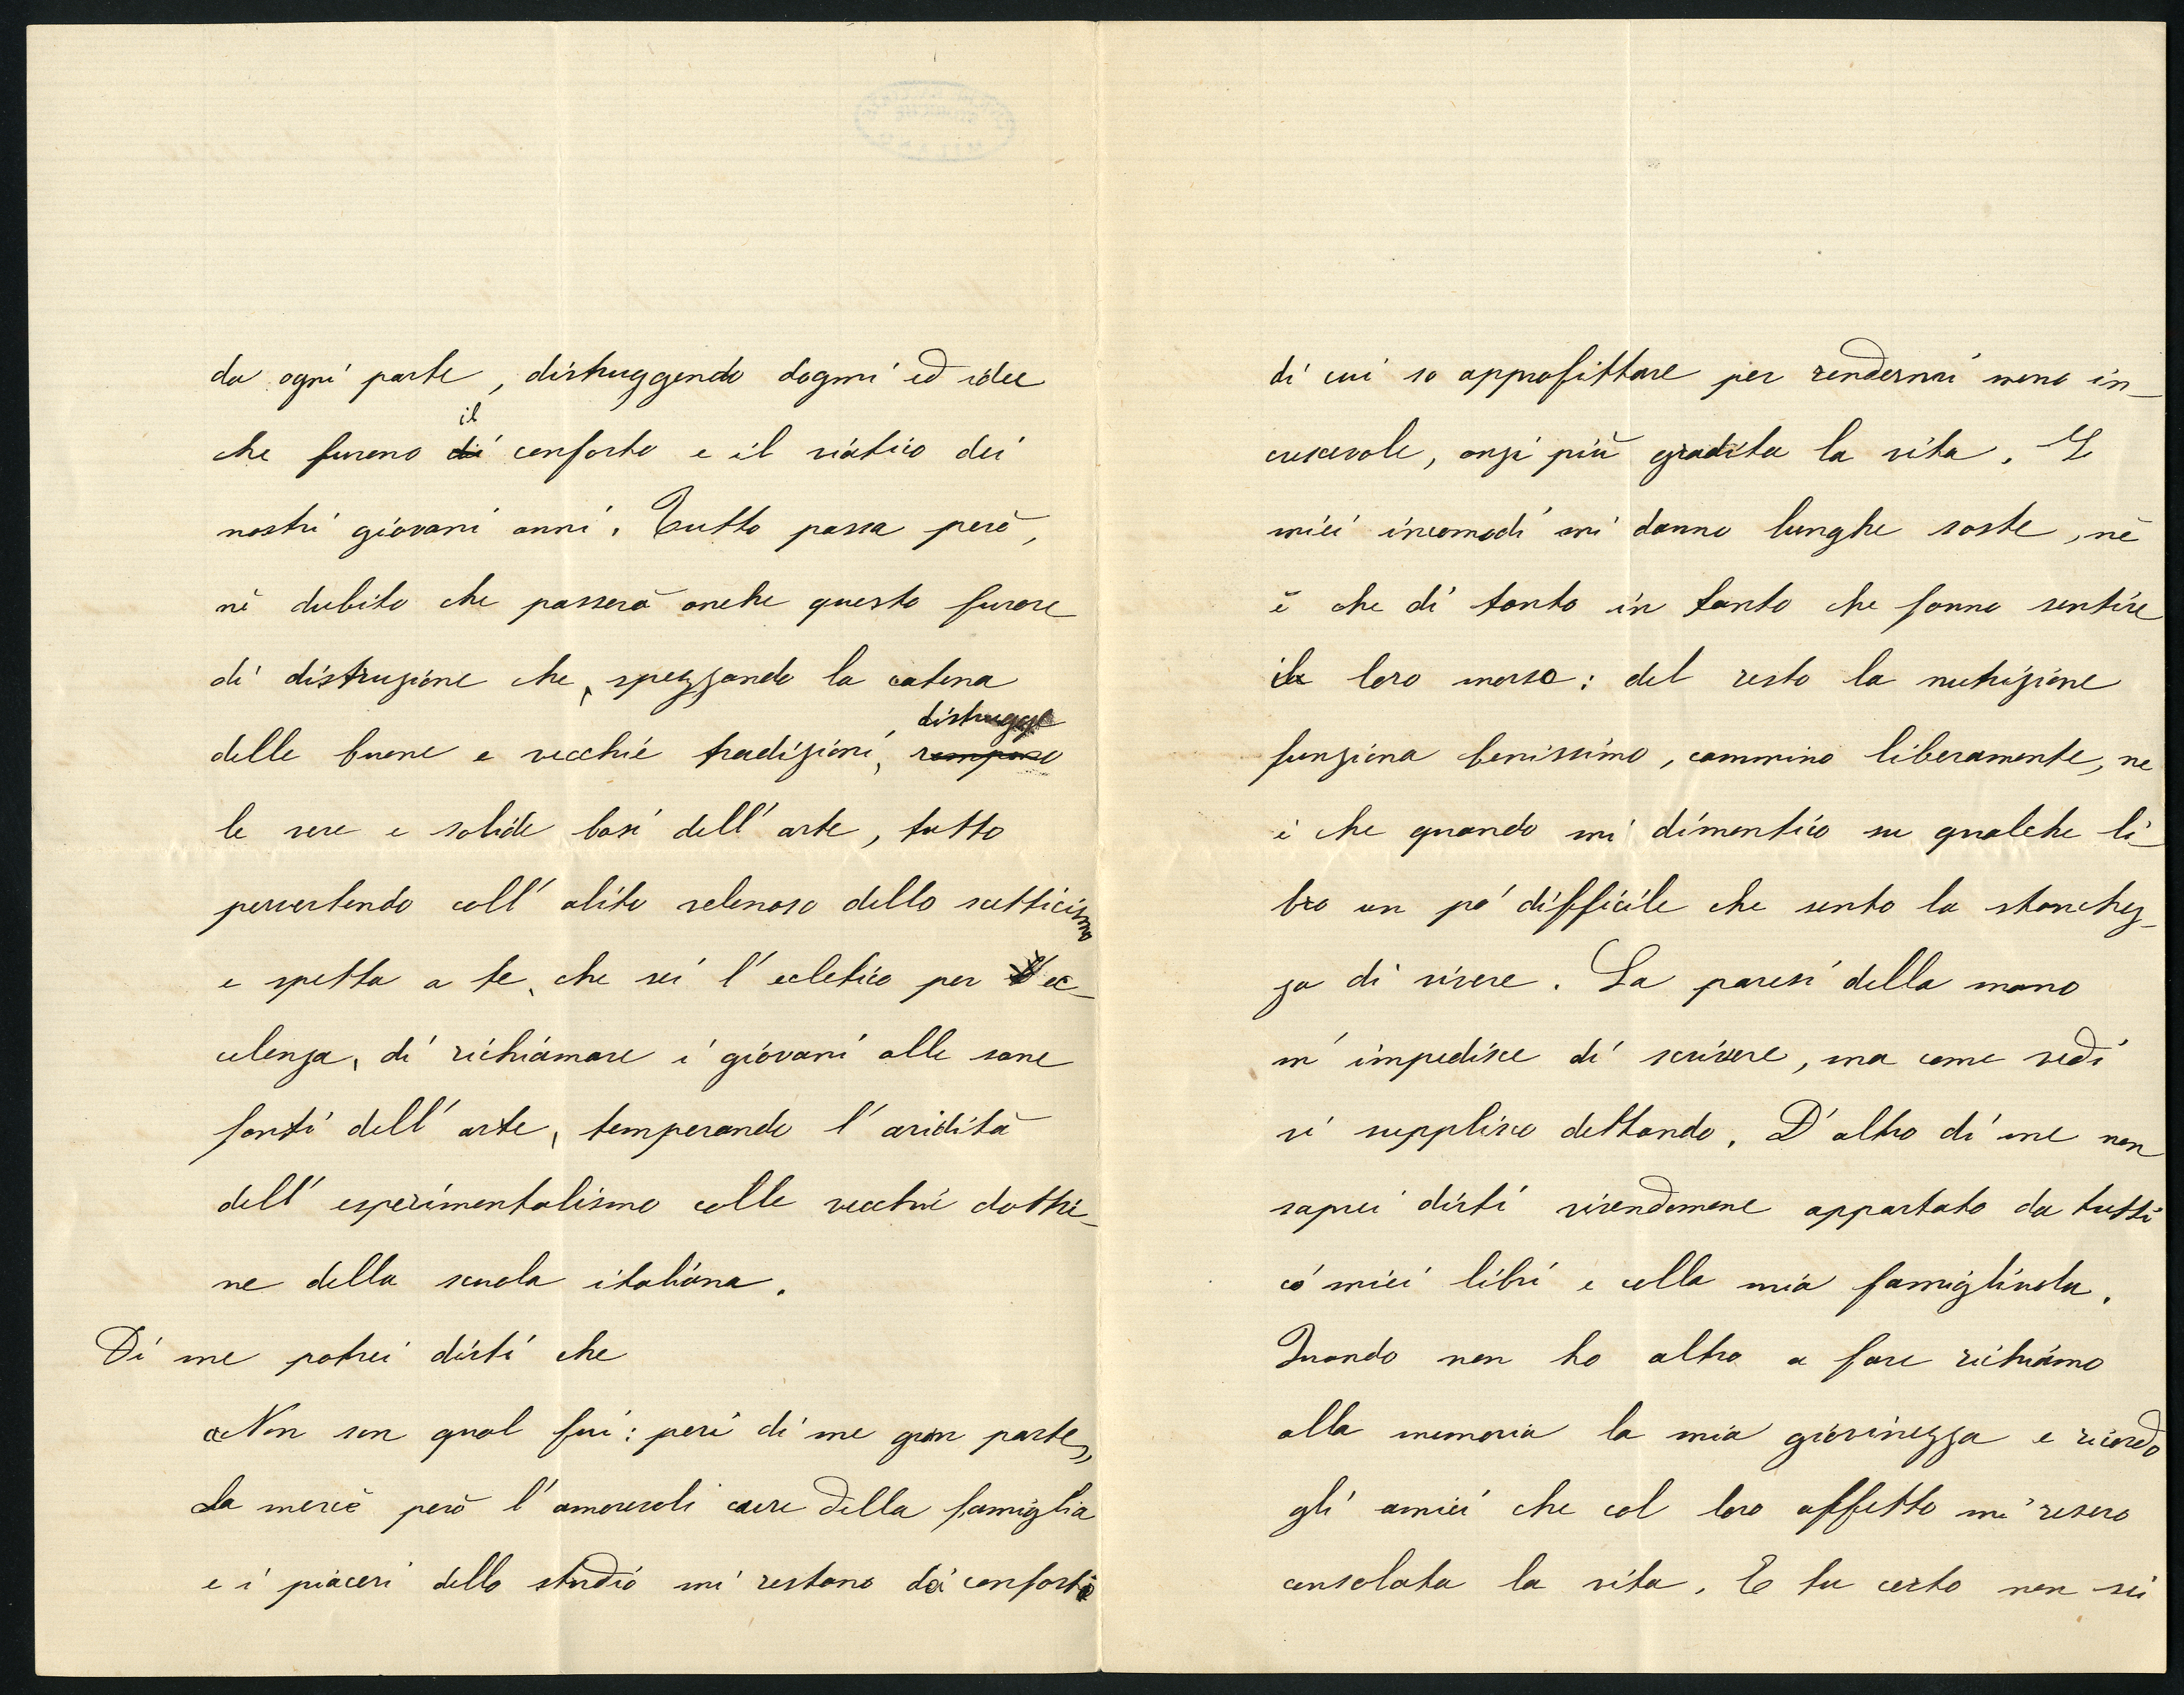 da ogni parte, distruggendo dogmi ed idee
che furono di il conforto e il viatico dei
nostri giovani anni. Tutto passa però,
nè dubito che passerà anche questo furore
di distruzione che, spezzando la catena
delle buone e vecchie tradizioni, rompono distrugge
le vere e solide basi dell' arte, tutto
pervertendo coll' alito velenoso dello scetticismo
e spetta a te, che sei l' ecletico per ec-
celenza, di richiamare i giovani alle sane
fonti dell' arte, temperando l' aridità
dell' esperimentalismo colle vecchie dottri-
ne della scuola italiana.
Di me potrei dirti che
"Non son qual fui: perì di me gran parte,,
La mercè però l' amorevoli cure della famiglia
e i piaceri dello studio mi restano dei conforti
di cui so approfittare per rendermi meno in-
crescevole, anzi più gradita la vita. I
miei incomodi mi danno lunghe soste, nè
è che di tanto in tanto che fanno sentire
il loro morso: del resto la nutrizione
funziona benissimo, cammino liberamente, ne
è che quando mi dimentico su qualche li-
bro un po' difficile che sento la stanchez-
za di vivere. La paresi della mano
m' impedisce di scrivere, ma come vedi
vi supplisco dettando. D' altro di me non
saprei dirti vivendomene appartato da tutti
co' miei libri e colla mia famigliuola.
Quando non ho altro a fare richiamo
alla memoria la mia giovinezza e ricordo
gli amici che col loro affetto mi resero
consolata la vita. E tu certo non sei